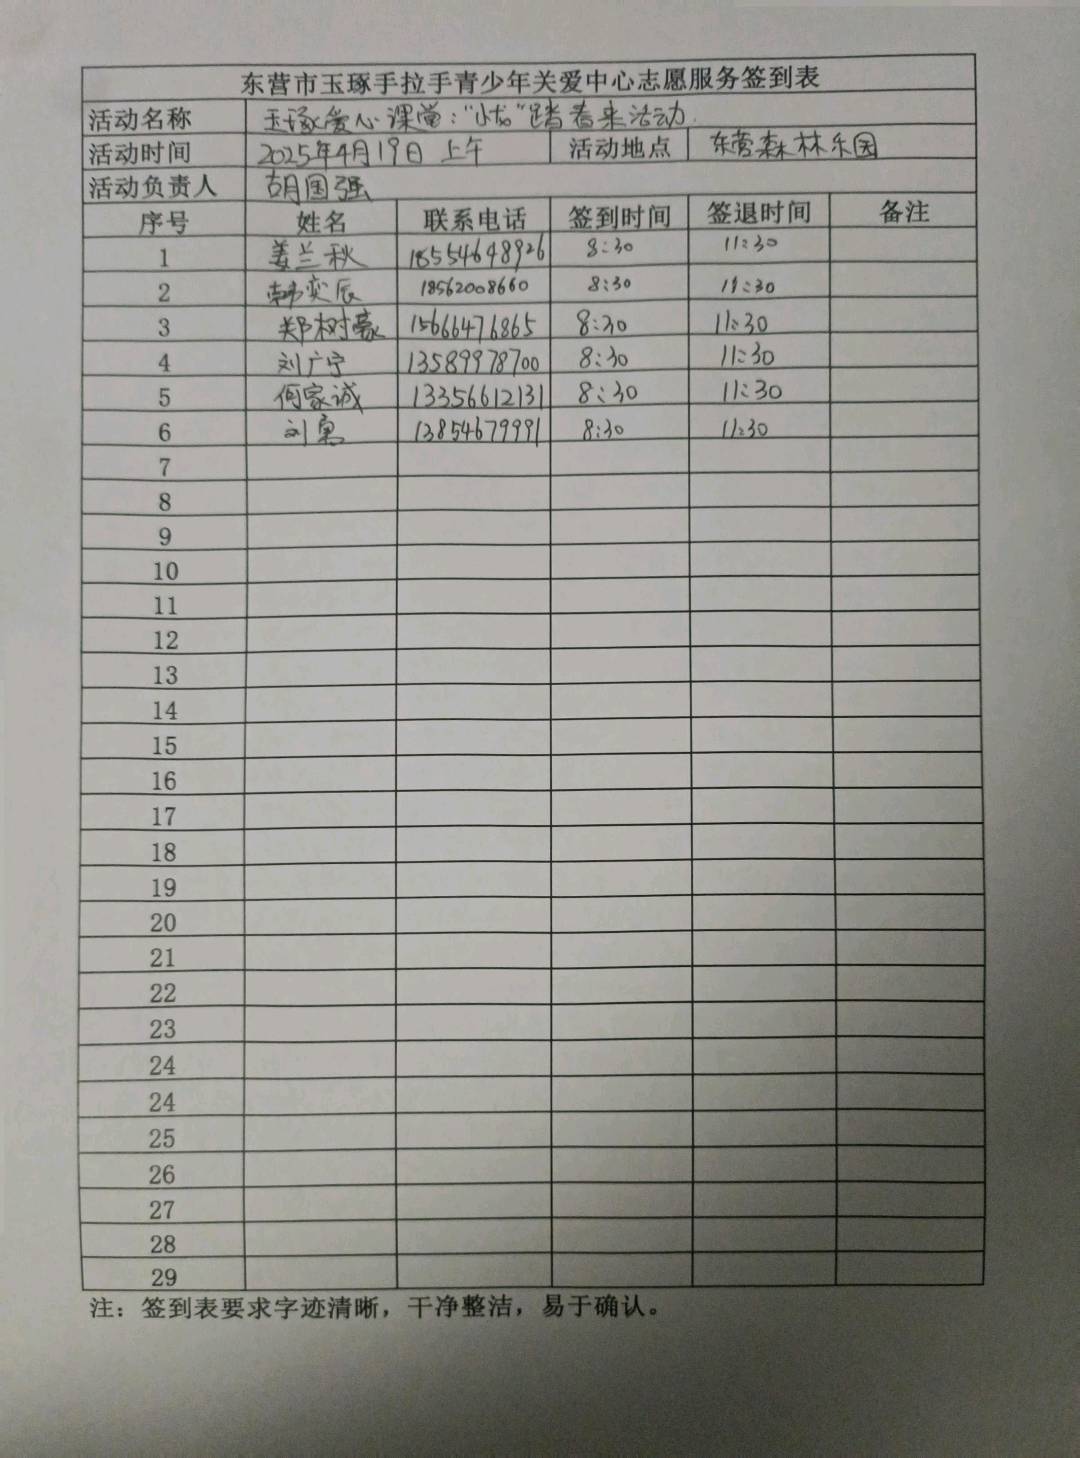 东营市玉琢手拉手青少年关爱中心志愿服务签到表
活动名称 玉琢爱心课堂：“小龙”踏春来活动
活动时间 2025年4月19日 上午 活动地点 东营森林乐园
活动负责人 胡国强
序号 姓名 联系电话 签到时间 签退时间 备注
1 姜兰秋 18554648926 8:30 11:30
2 韩奕辰 18562008660 8:30 11:30
3 郑树豪 15666476865 8:30 11:30
4 刘广宁 13589978700 8:30 11:30
5 何家诚 13356612131 8:30 11:30
6 刘 13854679991 8:30 11:30
7
8
9
10
11
12
13
14
15
16
17
18
19
20
21
22
23
24
24
25
26
27
28
29
注：签到表要求字迹清晰，干净整洁，易于确认。